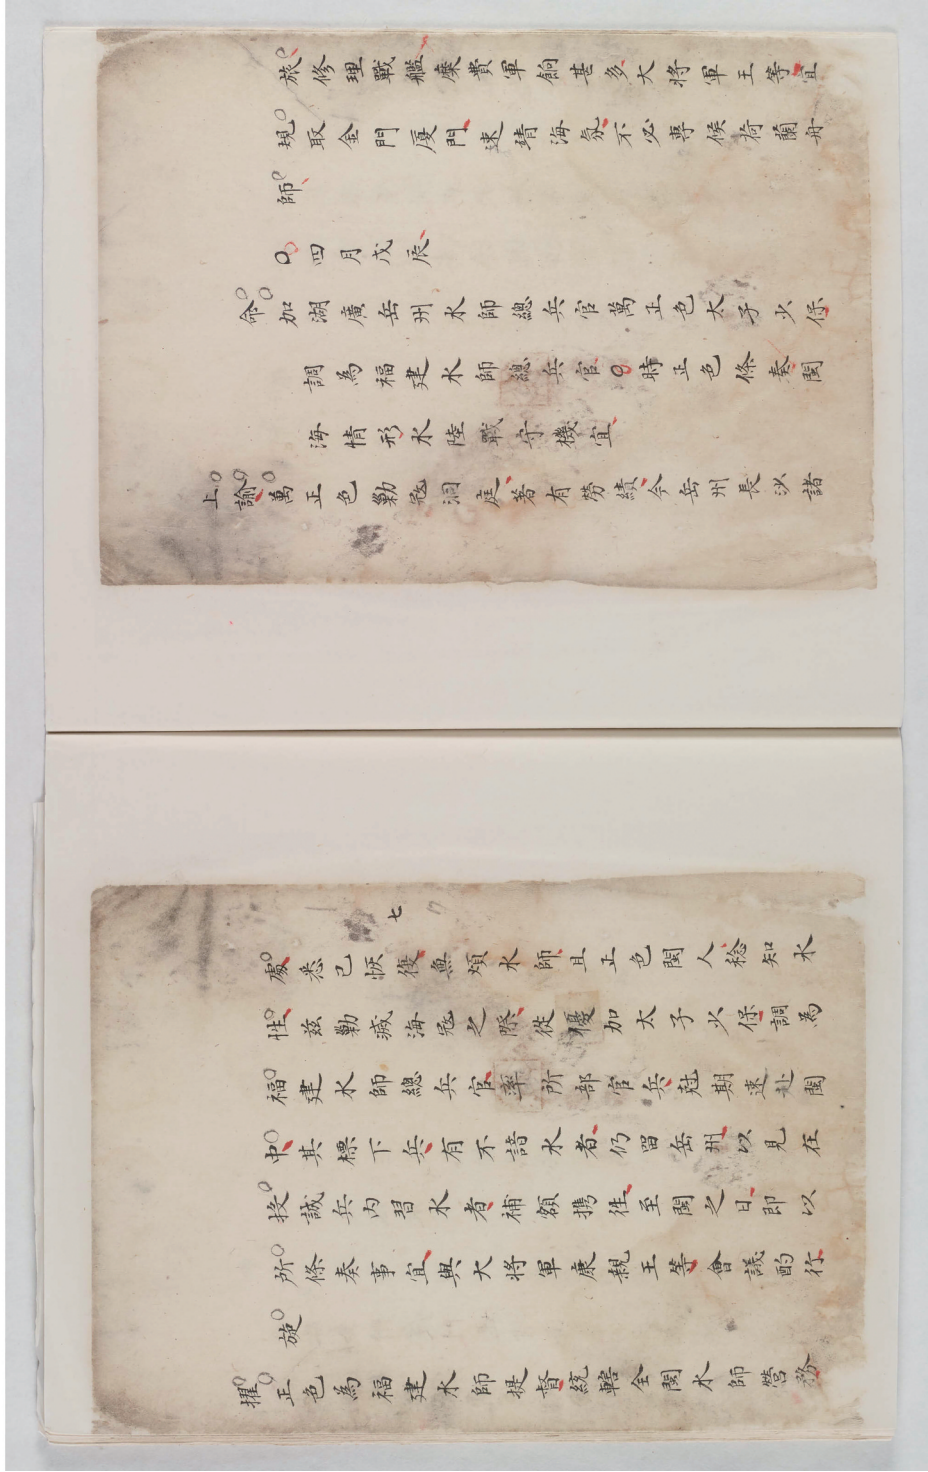 旅修理戰艦糜費軍餉甚多大將軍王等宜
規取金門厦門速靖海氛不必專候荷蘭舟
師
四月戊辰
命加湖廣岳州水師總兵官萬正色太子少保
調為福建水師總兵官時正色條奏閩
海情形水陸戰守機宜
上諭萬正色勦冦洞庭著有勞績今岳州長沙諸
七
處悉已恢復無煩水師且正色閩人稔知水
性兹勦滅海冦之際從優加太子少保調為
福建水師總兵官率所部官兵尅期速赴閩
中其標下兵有不諳水者仍留岳州以見在
投誠兵內習水者補額携往至閩之日即以
所條奏事宜與大將軍康親王等會議酌行
旋
擢正色為福建水師提督統轄全閩水師營務